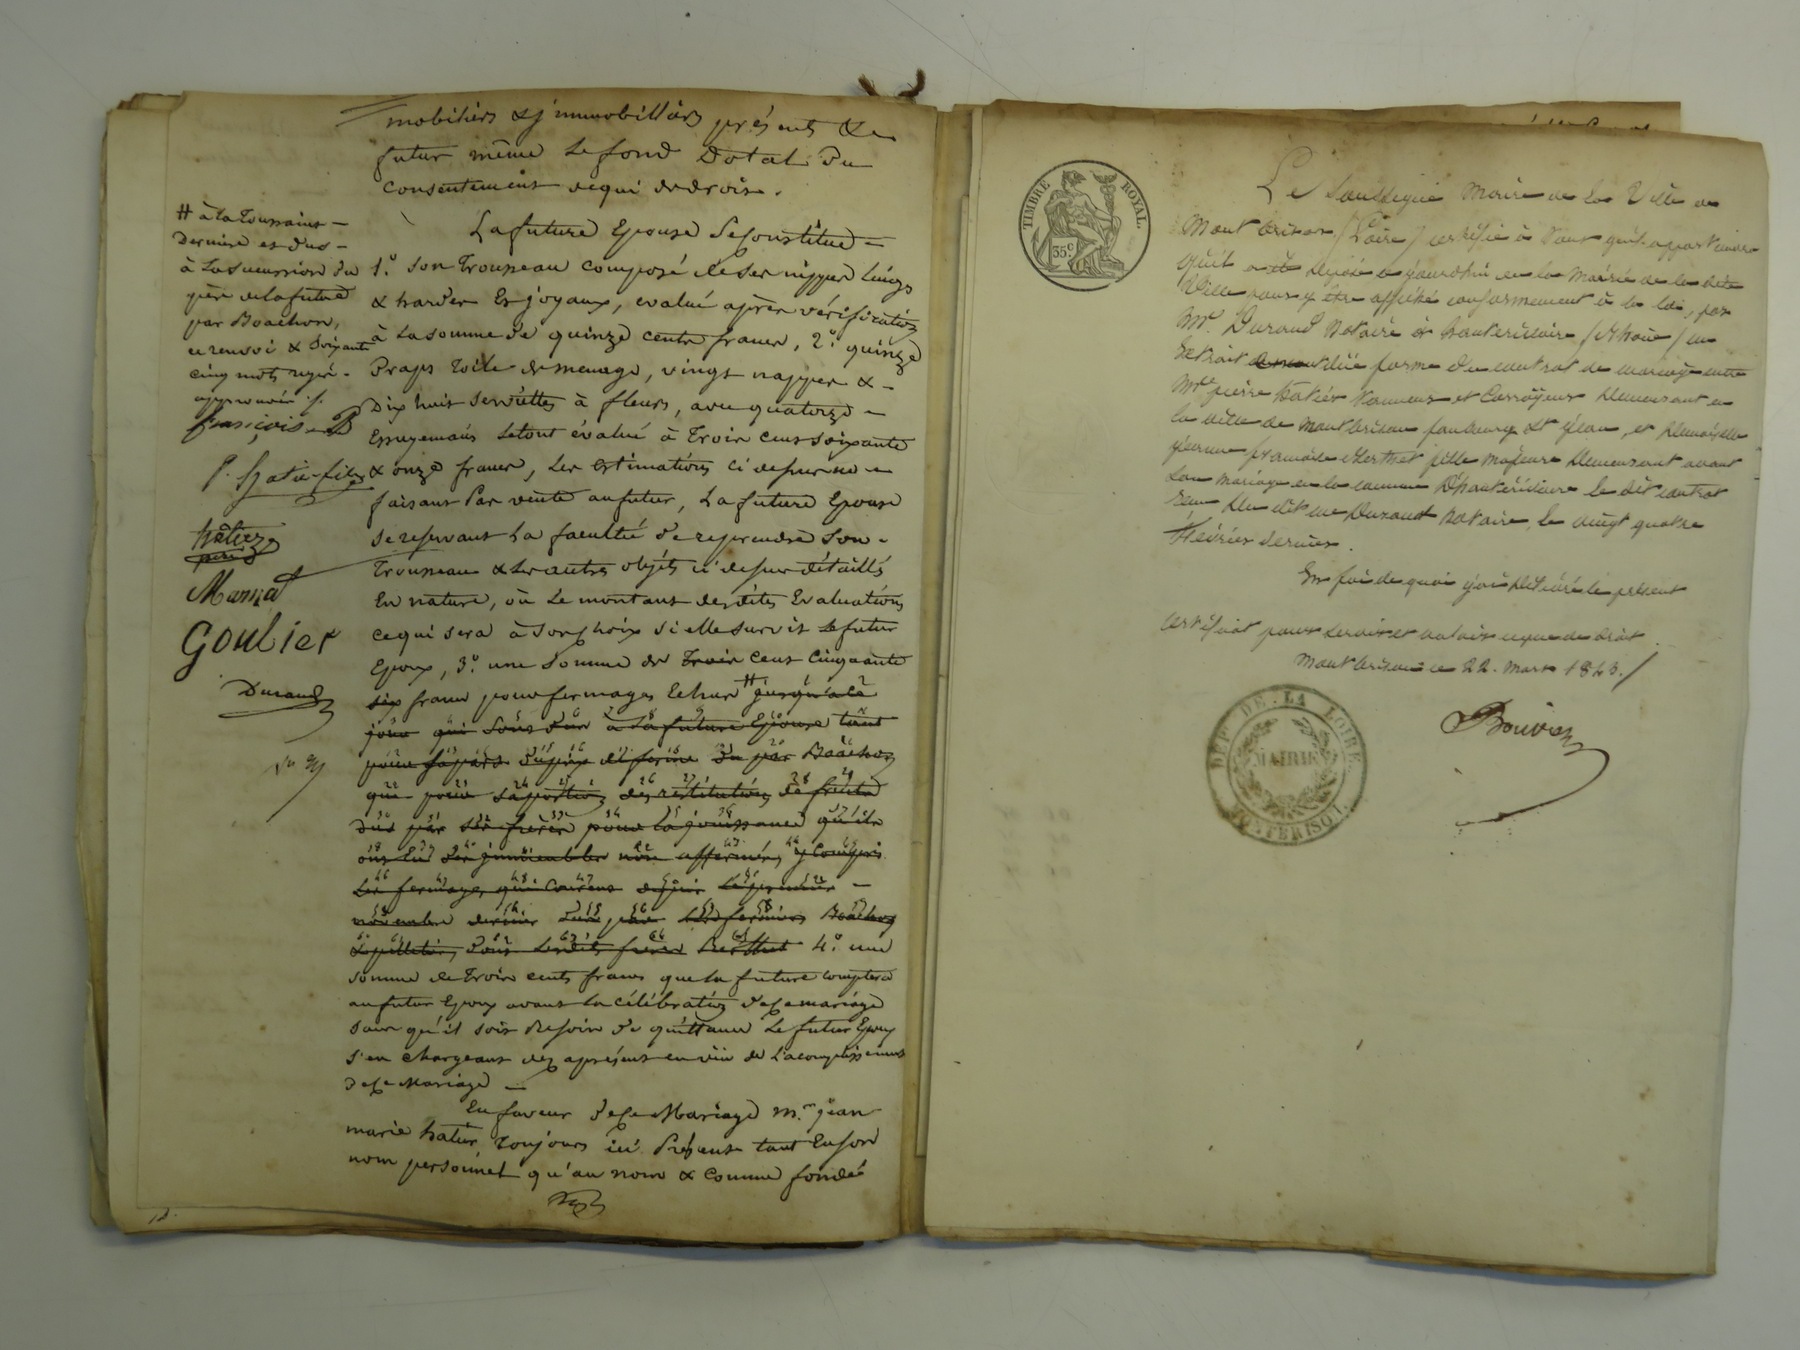 mobiliers & immobilliers présents & a
futur même le fond Dotal Du
consentement de qui de droit.
La future Epouse Se Constitue
1.° Son Trousseau composé de ses nippes linges
& hardes & joyaux, evalué après vérification
à la somme de quinze cents francs, 2.° quinze
Draps Toile de menage, vingt nappes &
Dix huit serviettes à fleurs, avec quatorze
Essuyemains le tout évalué à Trois cent soixante
& onze francs, les estimations ci dessus ne
faisant pas vente au futur, La future Epouse
se reservant la faculté de reprendre son
Trousseau & les autres objets ci dessus détaillés
En nature, où le montant desdites Evaluations
ce qui sera à son choix si elle survit le futur
Epoux, 3.° une Somme de Trois cent cinquante
six francs pour fermages Echus # jusqu'à ce
jour qui sont dus à la future Epouse tant
pour sa part du prix de ferme du par Boachon
que pour sa portion des restitutions de fruits
dus par ses frères pour la jouissance qu'ils
ont Eu des immeubles non affermés, y compris
les fermages qui courent depuis le premier
novembre dernier dus par les fermiers Boachon
dus lesdits frères Berthet 4.° une
somme de Trois cents francs que la future comptera
au futur Epoux avant la célébration de ce mariage
sans qu'il soit Besoin de quittance le futur Epoux
s'en chargeant dès aprésent en vue de l'acomplissement
de ce Mariage
En faveur de ce Mariage m.r jean
marie hatier toujours ici Présent tant En son
nom personnel qu'au nom & comme fondé
# à la Toussaint
Dernière et dus
à la succession du
père de la future
par Boachon,
ce renvoi & soixante
cinq mots rayés
approuvés
françoise B
P. hatier fils
hatier
père
Manza
Goulier
Durand
TIMBRE ROYAL.
35.c
Le Soussigné Maire de la Ville de
Montbrison (Loire) certifie à tous qu'il apartiendra
qu'il a été déposé aujourdhui en la Mairie de la dite
Ville pour y être affiché conformement à la loi, par
Mr. Durand Notaire à hauterivoire (Rhone) un
Extrait en due forme du contrat de mariage entre
Mr. pierre hatier Tanneur et Corroyeur demeurant en
la ville de Montbrison faubourg St jean, et Demoiselle
jeanne françoise Berthet fille majeure demeurant avant
son mariage en la commune d'hauterivoire le dit contrat
reçu du dit me Durand notaire le vingt quatre
février dernier.
En foi de quoi j'ai délivré le présent
certificat pour servir et valoir ce que de droit.
Montbrison le 22. mars 1843.
Bouvier
DÉPT DE LA LOIRE
MAIRIE
MONTBRISON